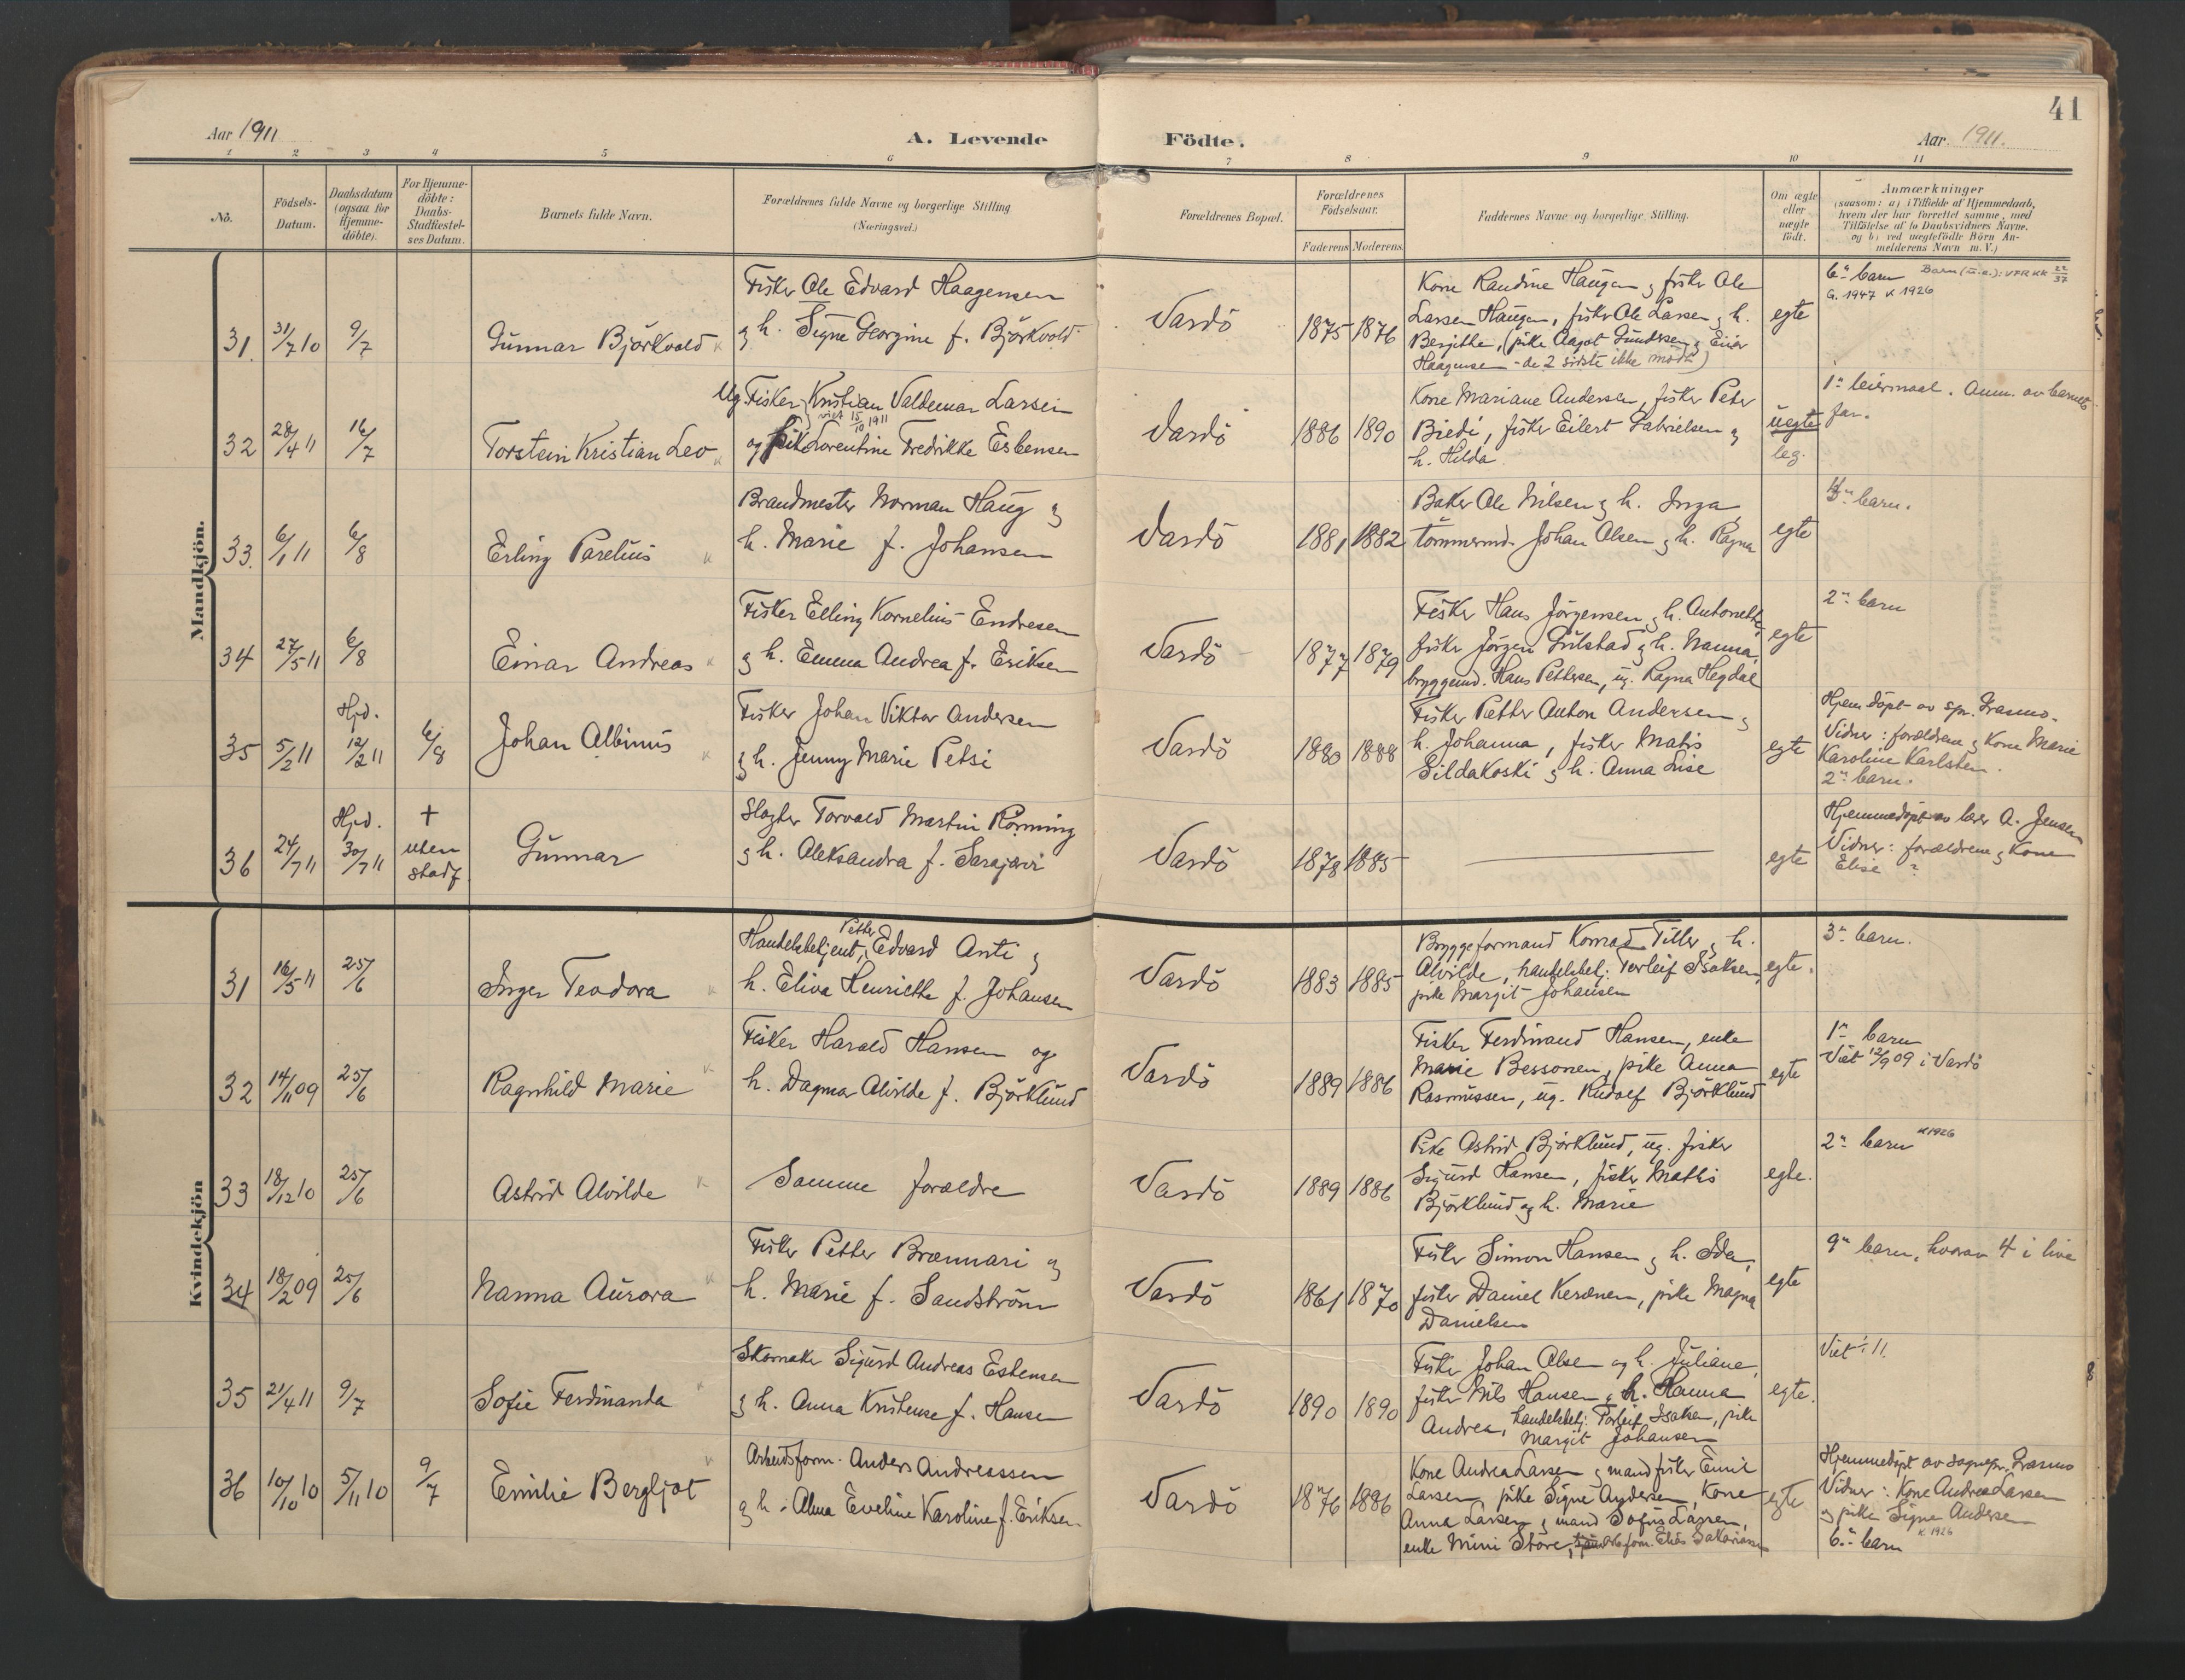 41
Aar 1911
A. Levende Födte.
Aar. 1911.
1 2 3 4 5 6 7 8 9 10 11
No.
Födsels-
Datum.
Daabsdatum
(ogsaa for
Hjemme-
döbte).
For Hjemme-
döbte:
Daabs-
Stadfæstel-
ses Datum.
Barnets fulde Navn.
Forældrenes fulde Navne og borgerlige Stilling
(Næringsvei.)
Forældrenes Bopæl.
Forældrenes
Födselsaar.
Faderens Moderens
Faddernes Navne og borgerlige Stilling.
Om ægte
eller
uægte
födt.
Anmærkninger
(saasom: a) i Tilfælde af Hjemmedaab,
hvem der har forrettet samme, med
Tilföielse af to Daabsvidners Navne.
og b) ved uægtefödte Börn An-
melderens Navn m. V.)
Mandkjön.
31. 31/7 10 9/7
Gunnar Björkvold
Fisker Ole Edvard Haagensen
og h. Signe Georgine f. Björkvold
Vardö
1875 1876
Kone Raudine Haugen og fisker Ole
Larsen Haugen, fisker Ole Larsen og h.
Bergithe, (pike Aagot Gundersen og Einar
Haagensen - de 2 sidste ikke mödt)
egte
6te barn
G. 1947 K 1926
32 28/4 11 16/7
Torstein Kristian Leo
Ug. Fisker Kristian Valdemar Larsen
viet 15/10 1911
og pike Lorentine Fredrikke Esbensen
Vardö
1886 1890
Kone Mariane Andersen, fisker Peter
Biedi, fisker Eilert Gabrielsen og
h. Hilda
uegte
leg.
1ste leiermaal. Anm. av barnets
far.
33. 6/1 11 6/8
Erling Parelius
Brandmester Norman Haug og
h. Marie f. Johansen
Vardö
1881 1882
Baker Ole Nilsen og h. Inga,
tömmermd. Johan Olsen og h. Ragna
egte
barn.
34 27/5 11 6/8
Einar Andreas
Fisker Elling Kornelius Endresen
og h. Emma Andrea f. Eriksen
Vardö
1877 1879
Fisker Hans Jörgensen og h. Antonette,
fisker Jörgen Gulstad og h. Nanna,
bryggemd. Hans Pettersen, ug. Ragna Hegdal
egte
2et barn
35 5/2 11
Hjd.
12/2 11 6/8
Johan Albinus
Fisker Johan Viktor Andersen
og h. Jenny Marie Petsi
Vardö
1880 1888
Fisker Petter Anton Andersen og
h. Johanna, fisker Matis
Sildakoski og h. Anna Lise
egte
Hjemdöpt av spr. Grasmo.
Vidner: forældrene og Kone Marie
Karoline Karlsten.
2et barn.
36 24/7 11
Hjd.
30/7 11
+
uten
stadf
Gunnar
Slagter Torvald Martin Rörming
og h. Aleksandra f. Sarajærvi
Vardö
1878 1885
egte
Hjemmedöpt av lærer A. Jensen
Vidner: forældrene og Kone
Elise ?
Kvindekjön
31 16/5 11 25/6
Inger Teodora
Handelsbetjent, Petter Edvard Anti og
h. Eliva Henriette f. Johansen
Vardö
1883 1885
Bryggeformand Konrad Tiller og h.
Alvilde, handelsbetj. Torleif Isaksen,
pike Margit Johansen
egte.
3de barn.
32 14/11 09 25/6
Ragnhild Marie
Fisker Harald Hansen og
h. Dagmar Alvilde f. Björklund
Vardö
1889 1886
Fisker Ferdinand Hansen, enke
Marie Bessonen, pike Anna
Rasmussen, ug. Rudolf Björklund
egte
1ste barn
Viet 12/9 09 i Vardö
33 18/12 10 25/6
Astrid Alvilde
Samme forældre
Vardö
1889 1886
Pike Astrid Björklund, ug. fisker
Sigurd Hansen, fisker Mathis
Björklund og h. Marie
egte.
2et barn K 1926
34 18/2 09 25/6
Nanna Aurora
Fisker Petter Brænnari og
h. Marie f. Sandström
Vardö
1861 1870
Fisker Simon Hansen og h. Ida,
fisker Daniel Keränen, pike Magna
Danielsen
egte
9de barn, hvorav 4 i live
35 21/4 11 9/7
Sofie Ferdinanda
Skomaker Sigurd Andreas Esbensen
og h. Anna Kristense f. Hansen
Vardö
1890 1890
Fisker Johan Olsen og h. Juliane,
fisker Nils Hansen og h. Hanna
Andrea, handelsbetj. Torleif Isaksen, pike
Margit Johansen
egte.
Viet i 11.
36 10/10 10 5/11 10 9/7
Emilie Bergljot
Arbeidsform. Anders Andreassen
og h. Alma Eveline Karoline f. Eriksen
Vardö
1876 1886
Kone Andrea Larsen og mand fisker Emil
Larsen, pike Signe Andersen, Kone
Anna Larsen og mand Sofus Larsen,
enke Mimi Störe, form. Elias Sakariassen
egte
Hjemmedöpt av sognepr. Grasmo
Vidner: Kone Andrea Larsen
og pike Signe Andersen
K 1926
6te barn